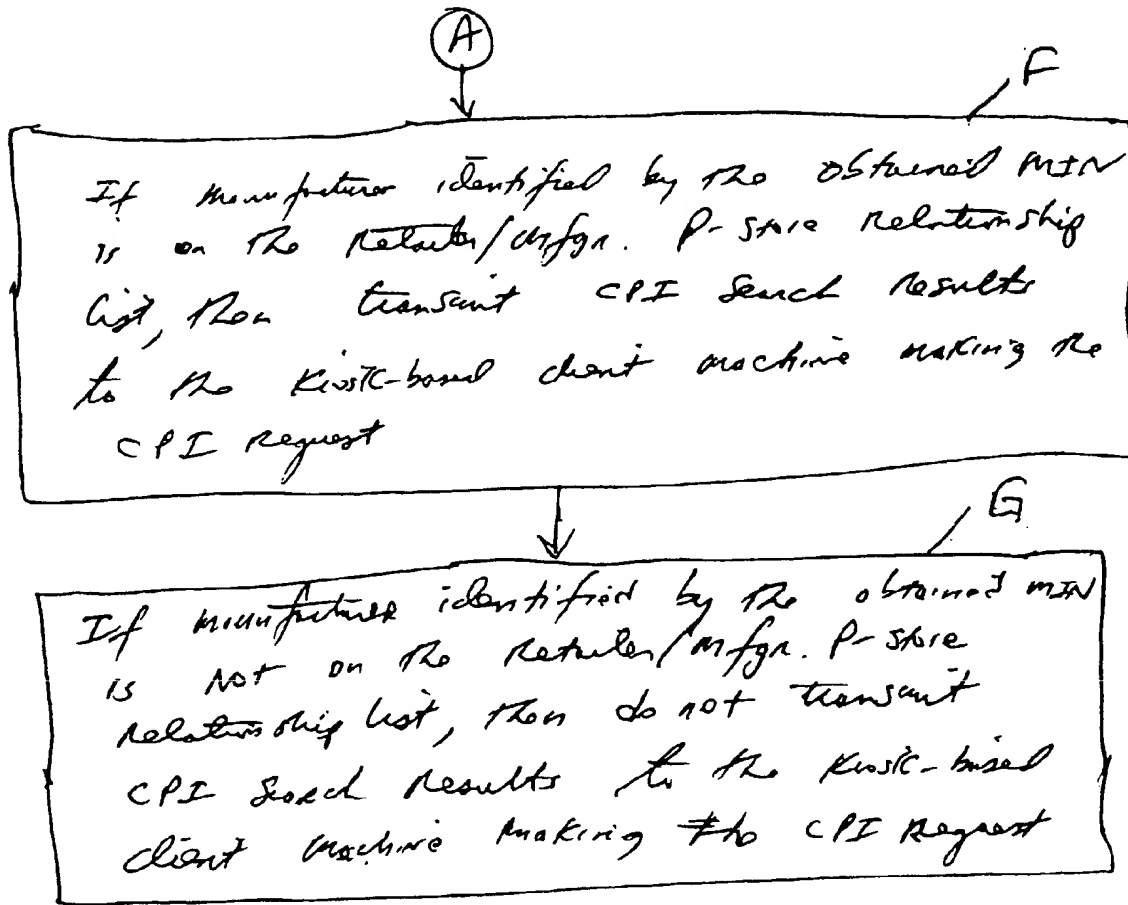 A
F
If manufacturer identified by the obtained MIN
is on the Retailer/Mfgr. P-store Relationship
list, then transmit CPI Search Results
to the Kiosk-based client machine making the
CPI Request
G
If manufacturer identified by the obtained MIN
is Not on the Retailer/Mfgr. P-store
Relationship list, then do not transmit
CPI Search Results to the Kiosk-based
client machine making the CPI Request